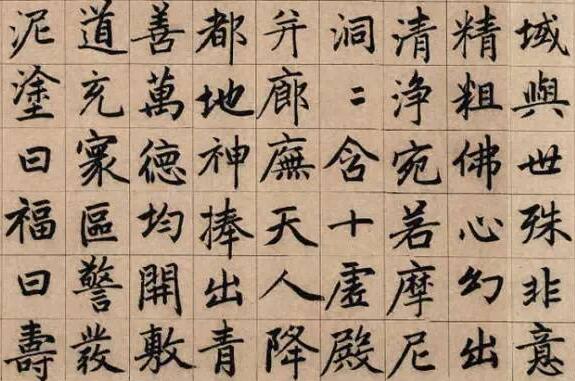 域與世殊非意
精粗佛心幻出
清浄宛若摩尼
洞〻含十虛殿
并廊廡天人降
都地神捧出青
善萬德均開敷
道充寰區警發
泥塗曰福曰壽